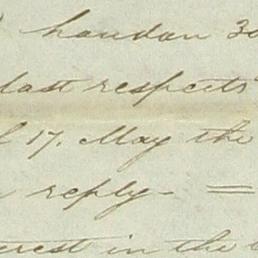 London 30
last respects
17. May the
reply - =
erest in the